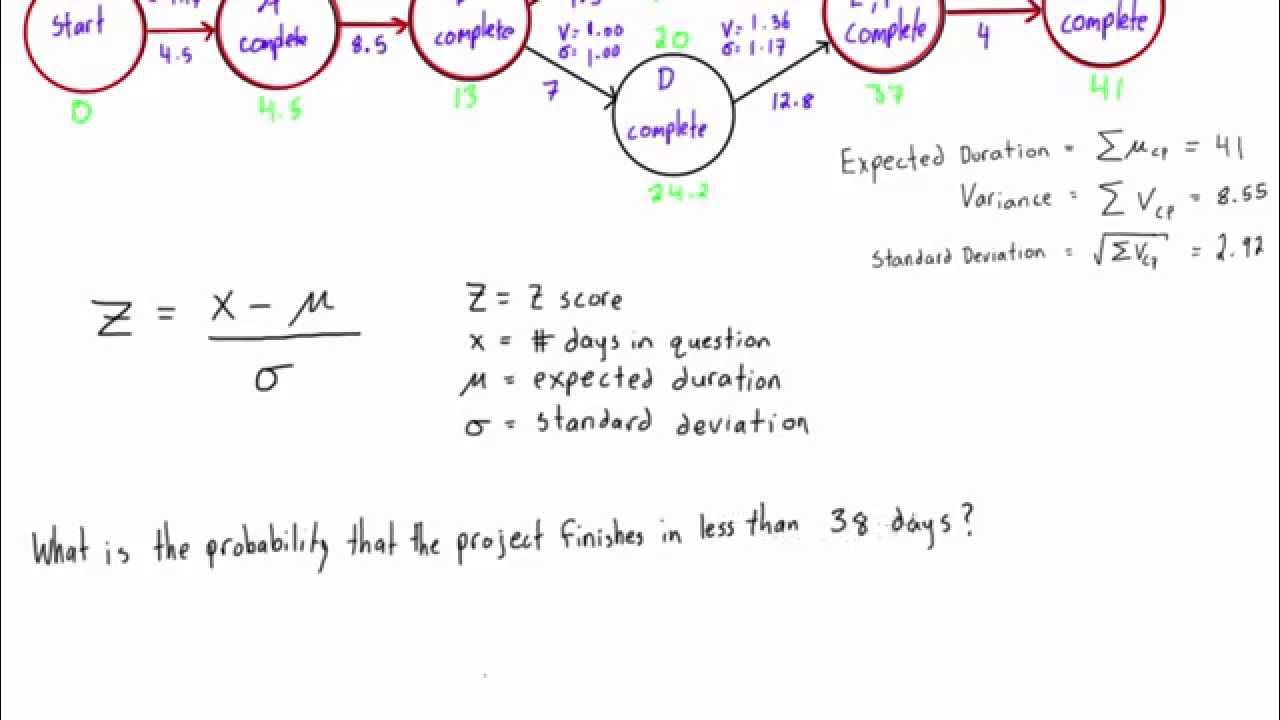 Start
complete
complete
complete
complete
4.5
8.5
V= 1.00
σ= 1.00
20
V= 1.36
σ= 1.17
4
0
4.5
13
7
D
complete
12.8
37
41
24.2
Expected Duration = Σμcp = 41
Variance = Σ Vcp = 8.55
Standard Deviation = √ΣVcp = 2.92
Z = x - μ
σ
Z = Z score
x = # days in question
μ = expected duration
σ = standard deviation
What is the probability that the project finishes in less than 38 days?